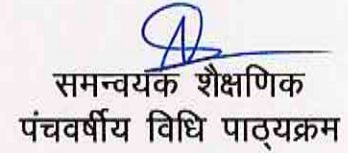 समन्वयक शैक्षणिक
पंचवर्षीय विधि पाठ्यक्रम